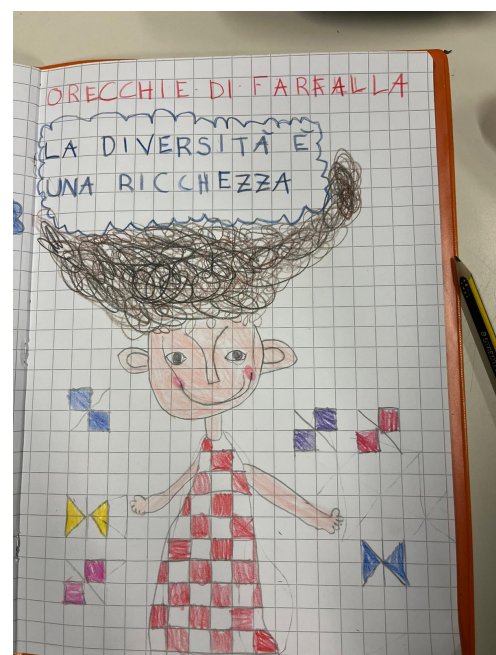 ORECCHIE DI FARFALLA
LA DIVERSITÀ È
UNA RICCHEZZA